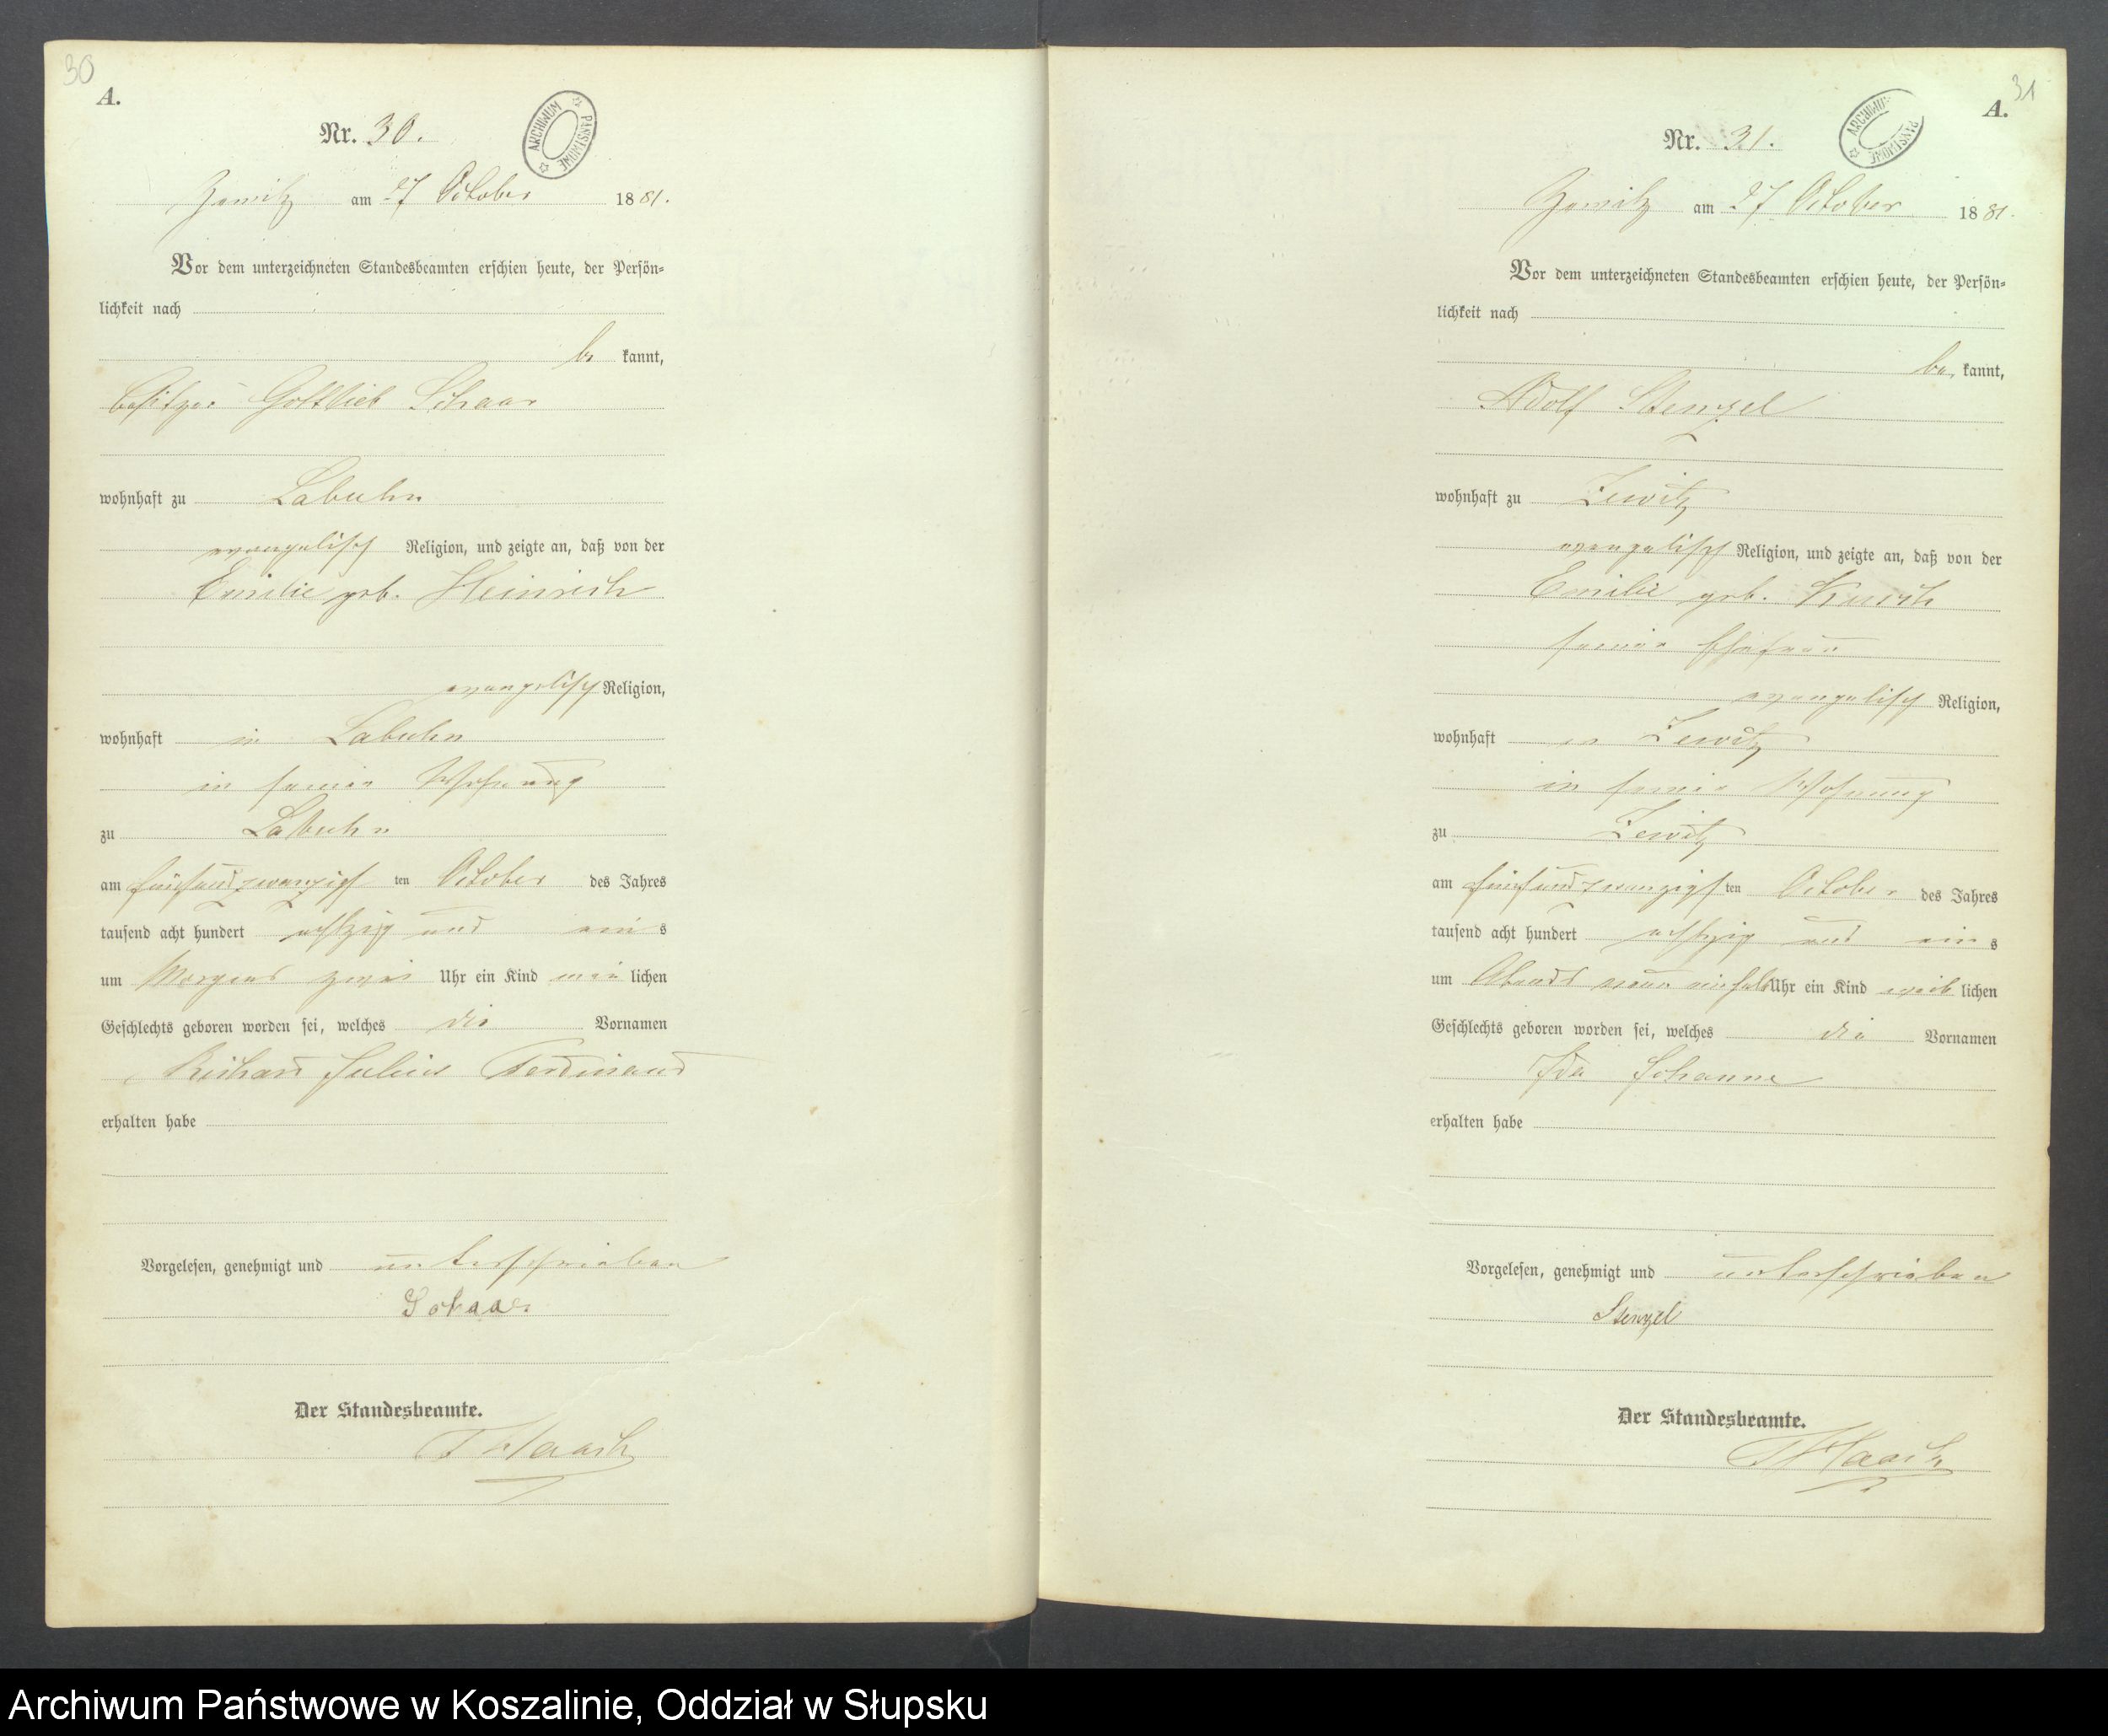 30
A.
Nr. 30.
ARCHIWUM PAŃSTWOWE
am 27 October 1881.
Vor dem unterzeichneten Standesbeamten erschien heute, der Persön-
lichkeit nach
be kannt,
Besitzer Gottlieb Schaar
wohnhaft zu Labuhn
evangelisch Religion, und zeigte an, daß von der
Emilie geb. Heinrich
evangelisch Religion,
wohnhaft in Labuhn
in seiner Wohnung
zu Labuhn
am fünfundzwanzigsten October des Jahres
tausend acht hundert achtzig und eins
um Morgens zwei Uhr ein Kind lichen
Geschlechts geboren worden sei, welches die Vornamen
Richard Julius Ferdinand
erhalten habe
Vorgelesen, genehmigt und unterschrieben
Schaar
Der Standesbeamte.
Haack
31
A.
Nr. 31.
ARCHIWUM PAŃSTWOWE
am 27 October 1881.
Vor dem unterzeichneten Standesbeamten erschien heute, der Persön-
lichkeit nach
be kannt,
Adolf Stenzel
wohnhaft zu Zewitz
evangelisch Religion, und zeigte an, daß von der
Emilie geb.
seiner Ehefrau
evangelisch Religion,
wohnhaft in Zewitz
in seiner Wohnung
zu Zewitz
am fünfundzwanzigsten October des Jahres
tausend acht hundert achtzig und eins
um Abends neun einhalb Uhr ein Kind weib lichen
Geschlechts geboren worden sei, welches die Vornamen
Ida Johanne
erhalten habe
Vorgelesen, genehmigt und unterschrieben
Stenzel
Der Standesbeamte.
Haack
Archiwum Państwowe w Koszalinie, Oddział w Słupsku